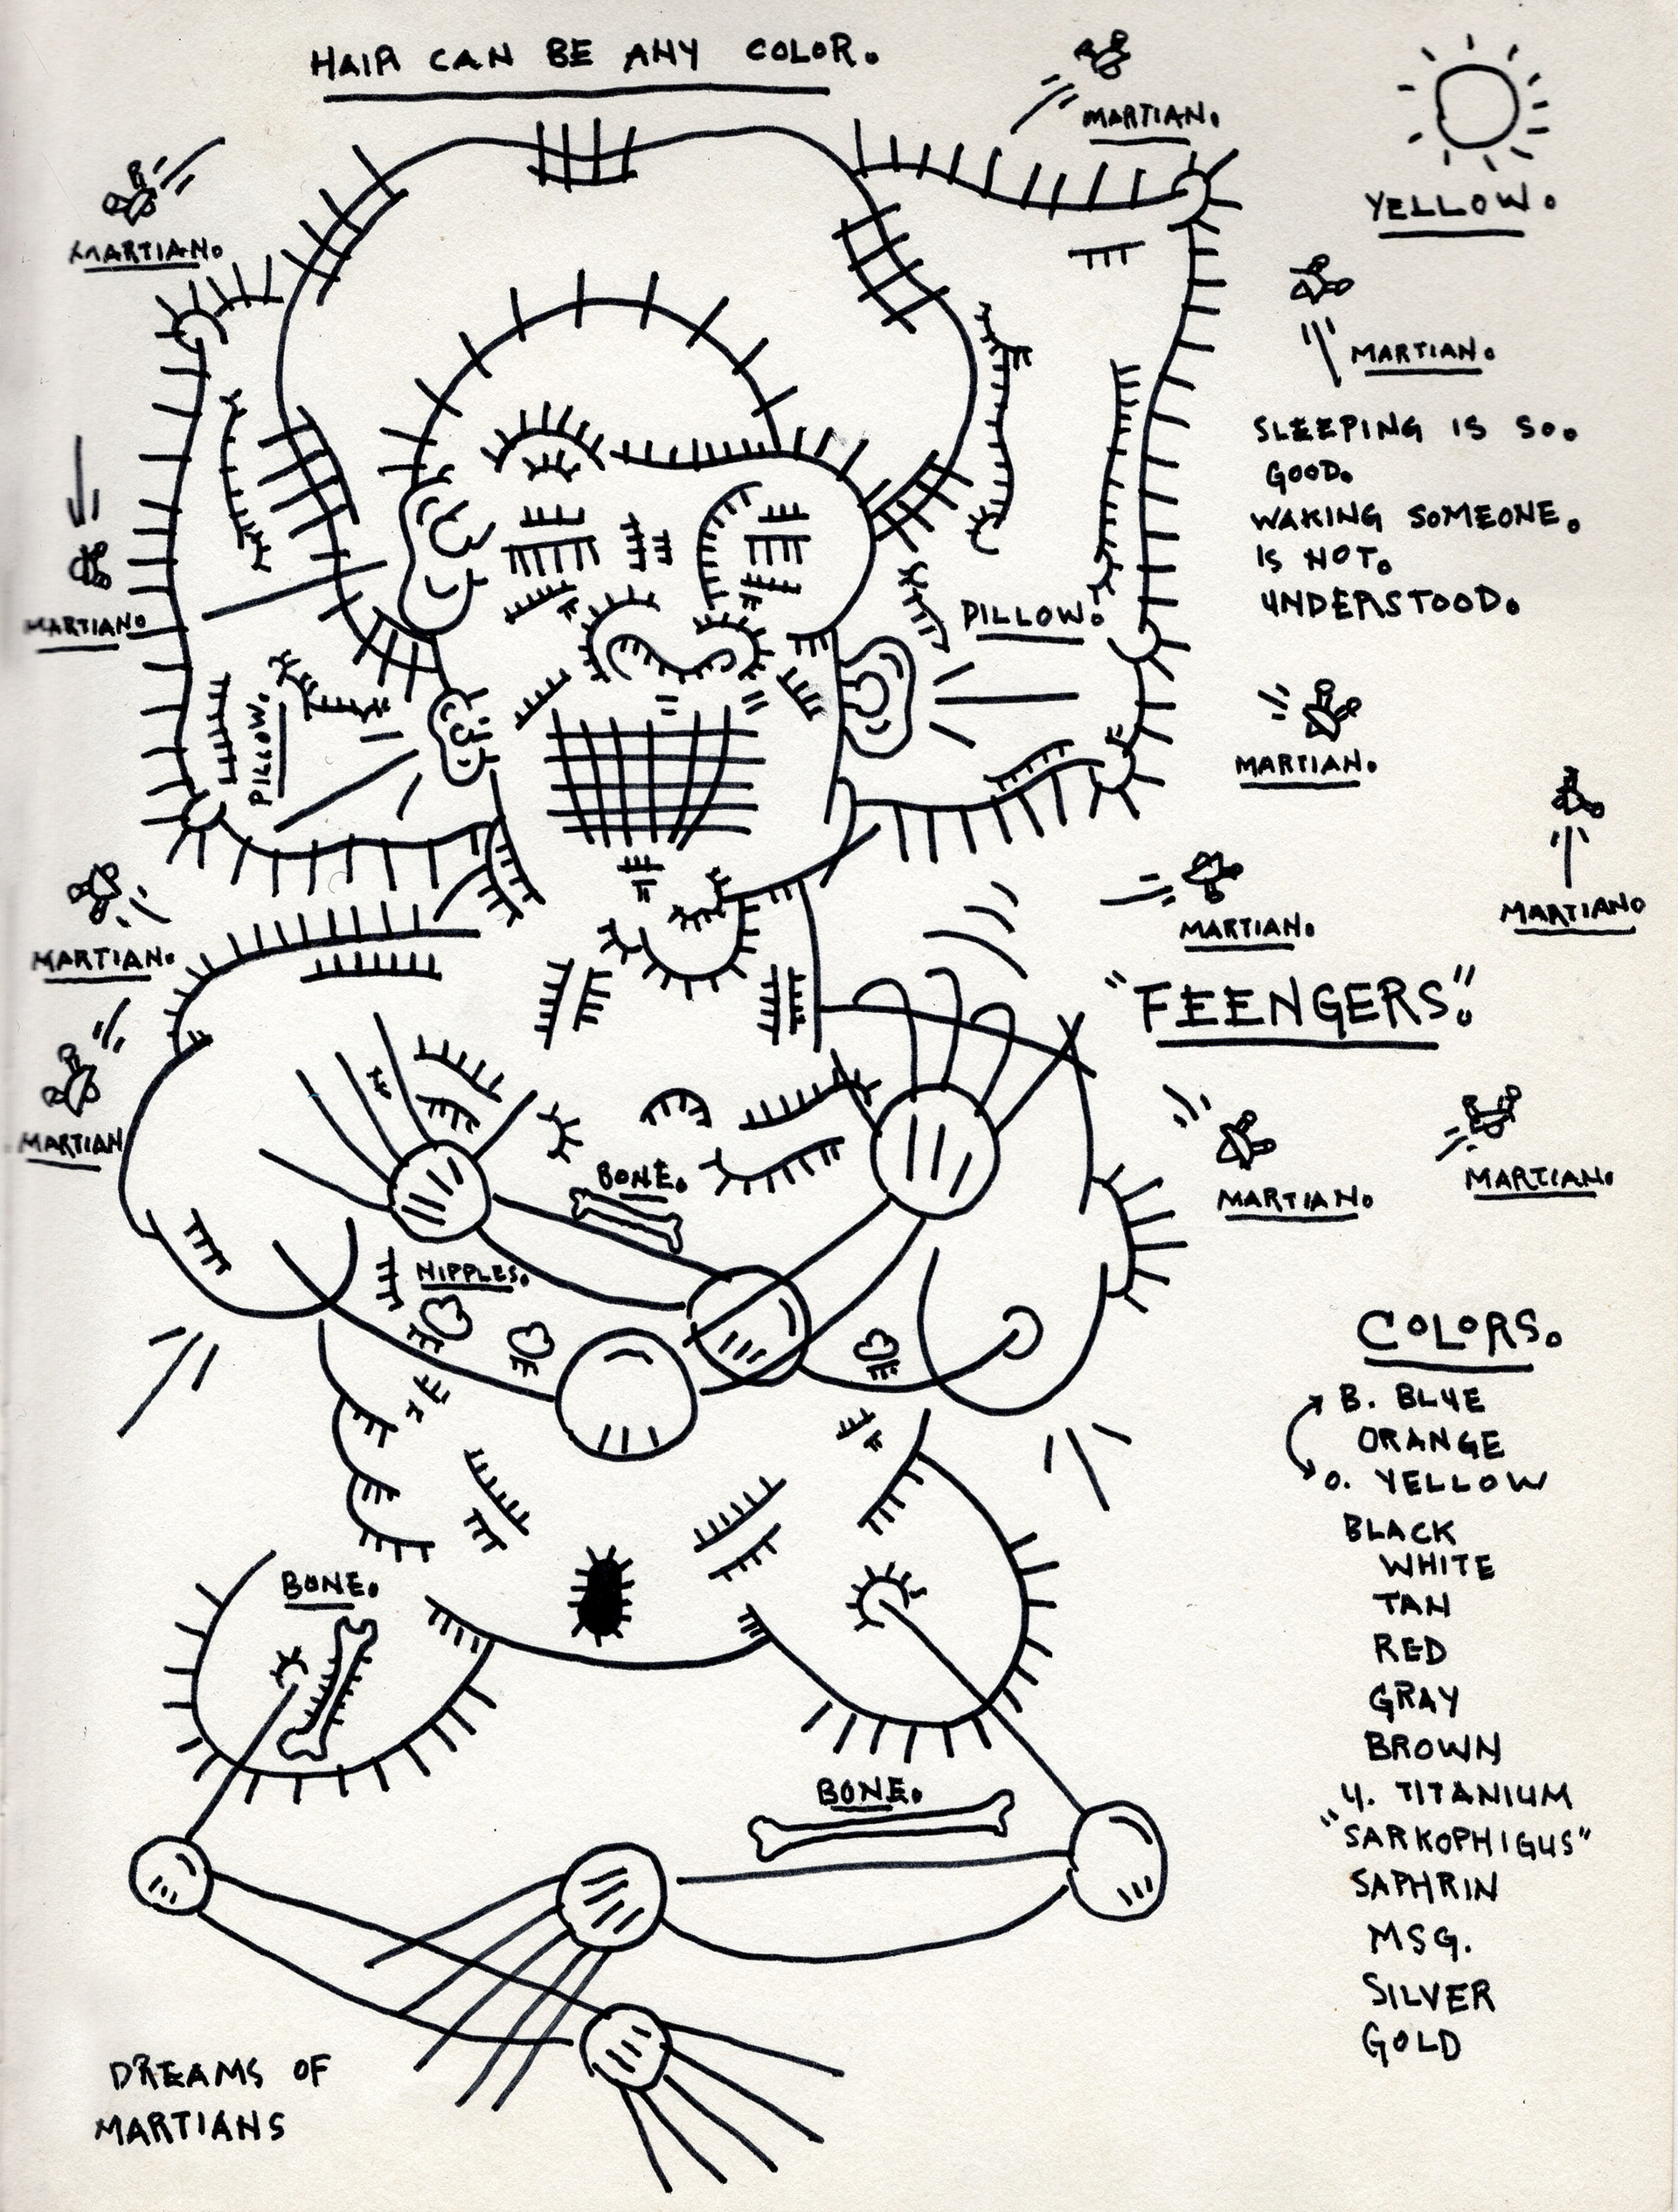 HAIR CAN BE ANY COLOR.
MARTIAN.
YELLOW.
MARTIAN.
MARTIAN.
SLEEPING IS SO.
GOOD.
WAKING SOMEONE.
IS NOT.
UNDERSTOOD.
MARTIAN.
PILLOW.
PILLOW.
MARTIAN.
MARTIAN.
MARTIAN.
MARTIAN.
"FEENGERS".
MARTIAN
MARTIAN.
MARTIAN.
BONE.
NIPPLES.
COLORS.
B. BLUE
ORANGE
O. YELLOW
BLACK
WHITE
TAN
RED
GRAY
BROWN
U. TITANIUM
"SARKOPHIGUS"
SAPHRIN
MSG.
SILVER
GOLD
BONE.
BONE.
DREAMS OF
MARTIANS